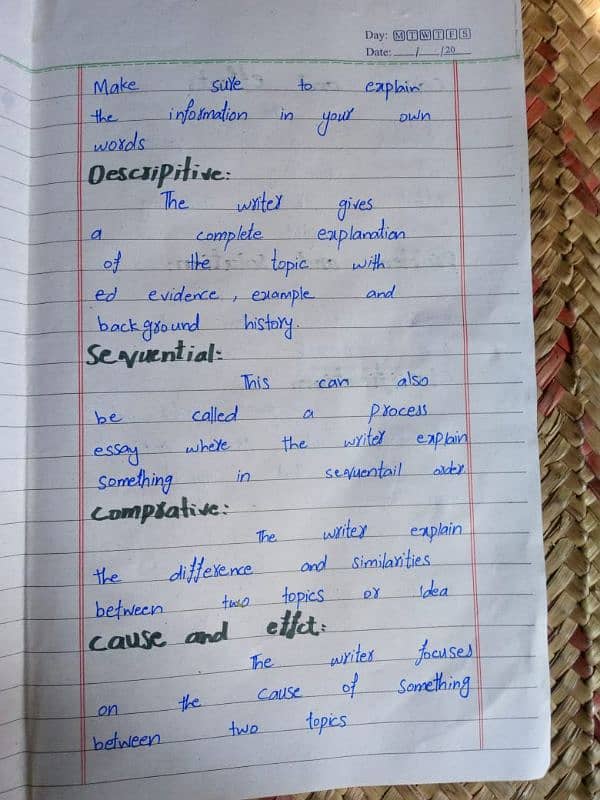 Day: M T W T F S
Date: __/__/20__
Make sure to explain
the information in your own
words
Descripitive:
The writer gives
a complete explanation
of the topic with
ed evidence, example and
background history.
Sequential:
This can also
be called a process
essay where the writer explain
something in sequentail order
Comprative:
The writer explain
the difference and similarities
between two topics or idea
Cause and effct:
The writer focuses
on the cause of something
between two topics